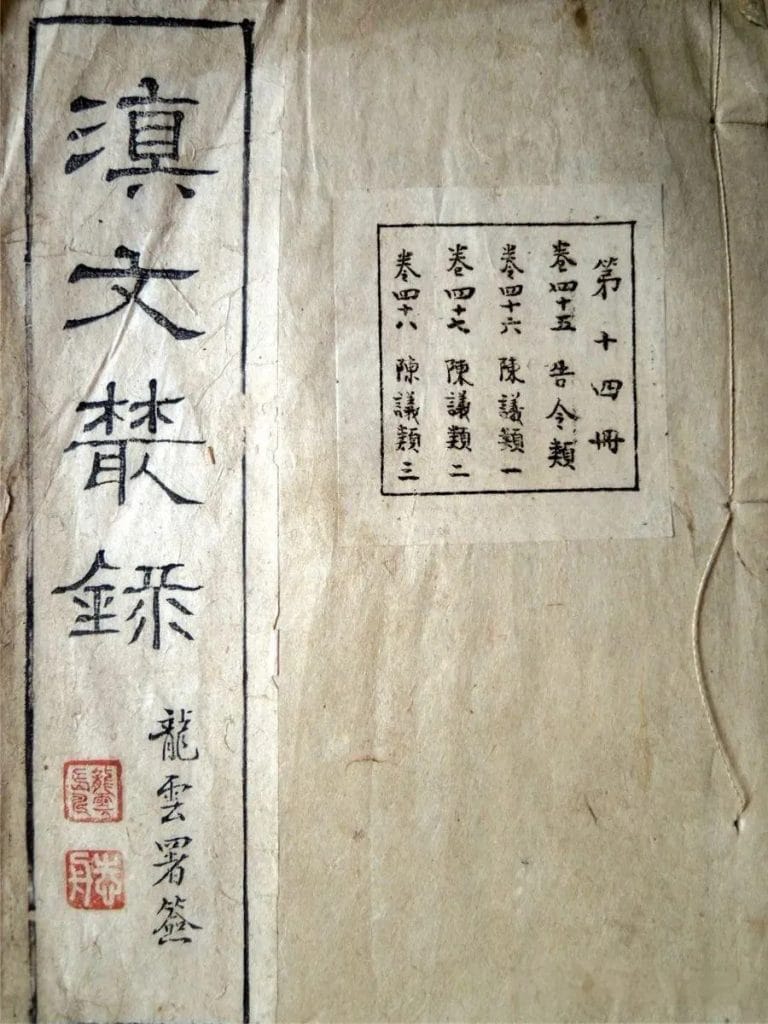 滇文樷錄
龍雲署簽
龍雲
志舟
第十四冊
卷四十五 告令類
卷四十六 陳議類一
卷四十七 陳議類二
卷四十八 陳議類三